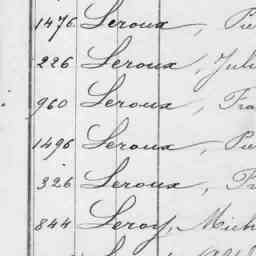 1476 Leroux, Pie
226 Leroux, Juli
960 Leroux, Fra
1496 Leroux, Pie
326 Leroux, Fr
844 Leroy, Mich